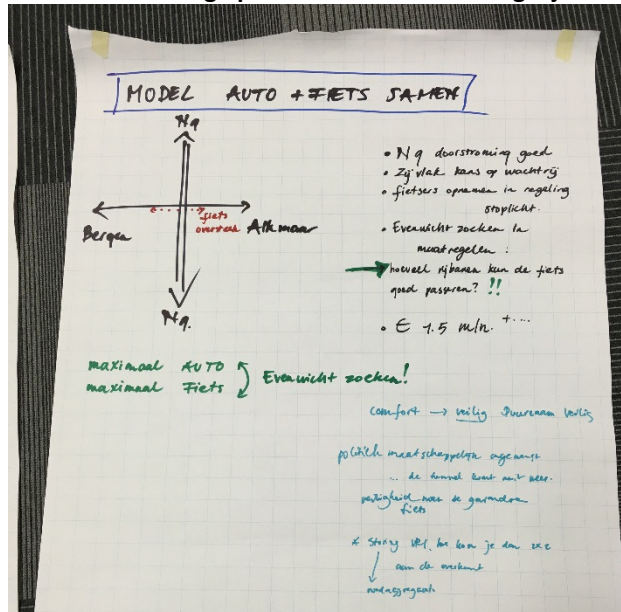 MODEL AUTO + FIETS SAMEN
N9
fiets
oversteek
Bergen
Alkmaar
N9.
• N9 doorstroming goed
• Zijvlak kans op wachtrij
• fietsers opnemen in regeling
stoplicht.
• Evenwicht zoeken in
maatregelen :
hoeveel rijbanen kan de fiets
goed passeren? !!
• € 1.5 mln. +....
maximaal AUTO
maximaal Fiets
Evenwicht zoeken!
comfort → veilig Duurzaam veilig
politiek maatschappelijk
... de tunnel komt niet meer.
veiligheid
fiets
* Storing VRI, hoe kom je dan
aan de overkant
noodaggregaat